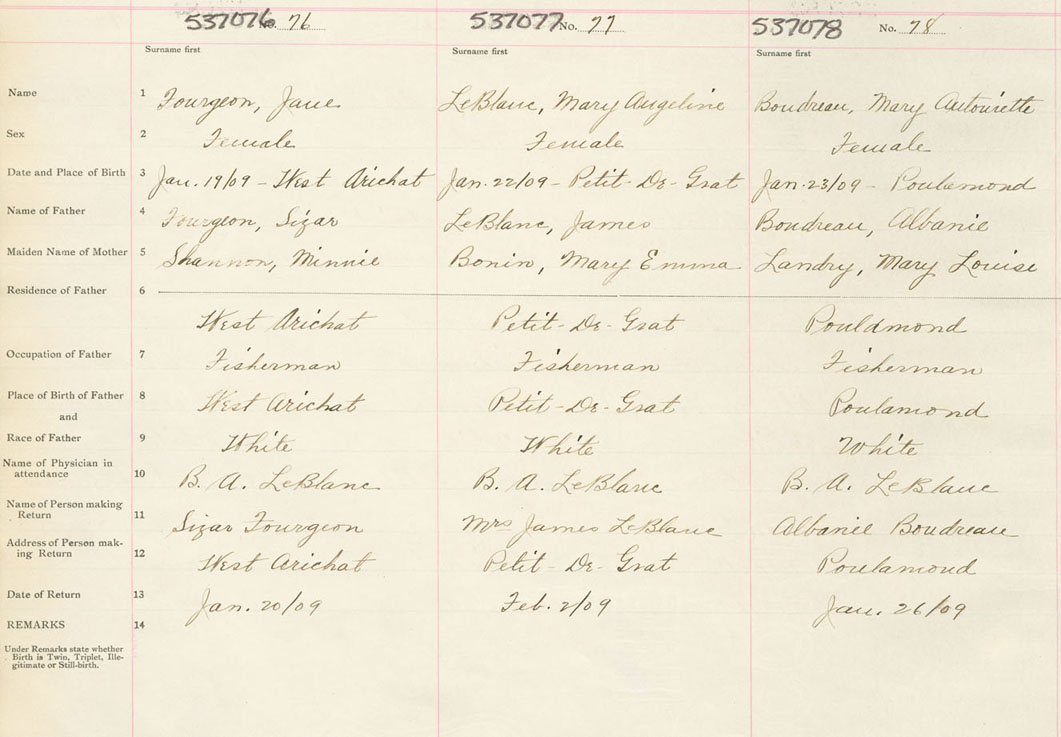 537076 No. 76 537077 No. 77 537078 No. 78
Surname first Surname first Surname first
Name 1 Fourgeon, Jane LeBlanc, Mary Angeline Boudreau, Mary Antoinette
Sex 2 Female Female Female
Date and Place of Birth 3 Jan. 19/09 - West Arichat Jan. 22/09 - Petit-De-Grat Jan. 23/09 - Poulamond
Name of Father 4 Fourgeon, Sizar LeBlanc, James Boudreau, Albanie
Maiden Name of Mother 5 Shannon, Minnie Bonin, Mary Emma Landry, Mary Louise
Residence of Father 6
West Arichat Petit-De-Grat Pouldmond
Occupation of Father 7 Fisherman Fisherman Fisherman
Place of Birth of Father 8 West Arichat Petit-De-Grat Poulamond
and
Race of Father 9 White White White
Name of Physician in
attendance 10 B. A. LeBlanc B. A. LeBlanc B. A. LeBlanc
Name of Person making
Return 11 Sizar Fourgeon Mrs James LeBlanc Albaniel Boudreau
Address of Person mak-
ing Return 12 West Arichat Petit-De-Grat Poulamond
Date of Return 13 Jan. 20/09 Feb. 2/09 Jan. 26/09
REMARKS 14
Under Remarks state whether
Birth is Twin, Triplet, Ille-
gitimate or Still-birth.